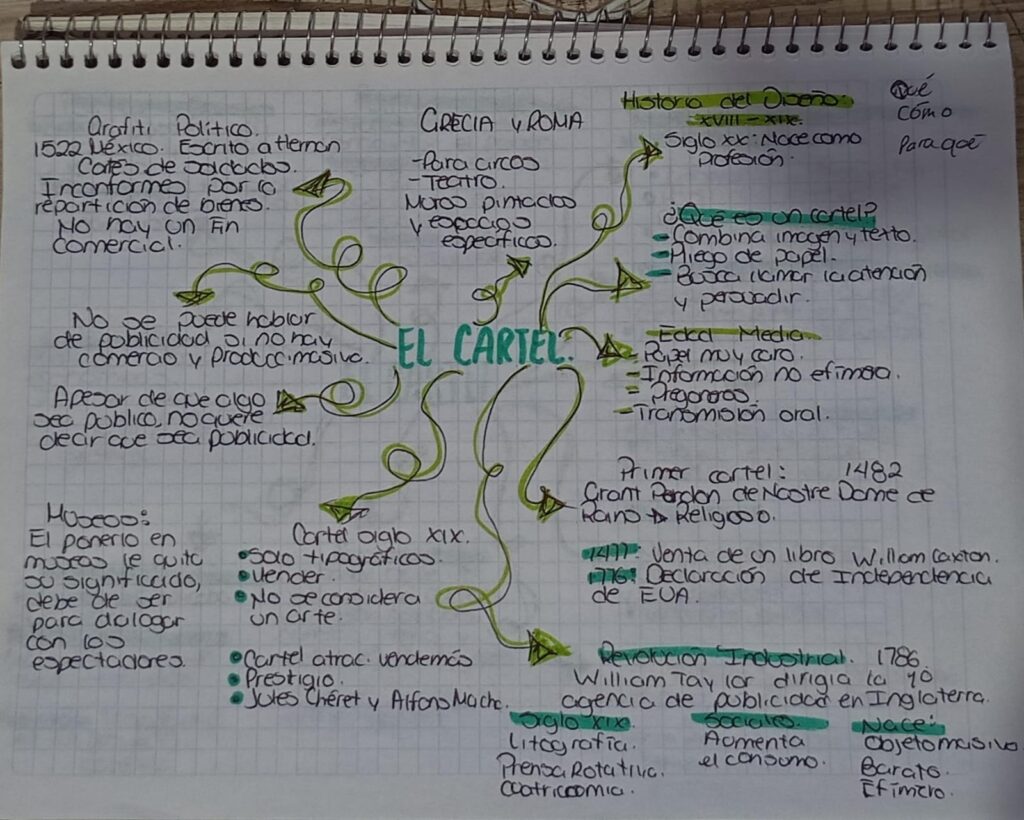 Qué
cómo
Para qué
Historia del Diseño:
XVIII - XIX.
Siglo XX: Nace como
profesión.
GRECIA y ROMA
-Para circos
-Teatro.
Muros pintados
y espacios
específicos.
Grafiti Político.
1522 México. Escrito a Hernan
Cortés de soldados.
Inconformes por la
repartición de bienes.
No hay un fin
comercial.
¿Qué es un cartel?
-Combina imagen y texto.
-Pliego de papel.
-Busca llamar la atención
y persuadir.
No se puede hablar
de publicidad si no hay
comercio y producc. masiva.
EL CARTEL:
Edad Media
-Papel muy caro.
-Información no efímera.
-Pregoneros.
-Transmisión oral.
Apesar de que algo
sea público, no quiere
decir que sea publicidad.
Primer cartel: 1482
Grant Pardon de Nostre Dame de
Rains → Religioso.
1477: Venta de un libro William Caxton.
1776: Declaración de Independencia
de EUA.
Museos:
El ponerlo en
museos le quita
su significado,
debe de ser
para dialogar
con los
espectadores.
Cartel siglo XIX.
•Solo tipográficos.
•Vender.
•No se considera
un arte.
•Cartel atrac. vendemás
•Prestigio.
•Jules Chéret y Alfons Mucha.
Revolución Industrial. 1786.
William Taylor dirigía la 1°
agencia de publicidad en Inglaterra.
Siglo XIX
Litografía.
Prensa Rotativa.
Cuatricomía.
Sociales.
Aumenta
el consumo.
Nace:
Objeto masivo
Barato.
Efímero.